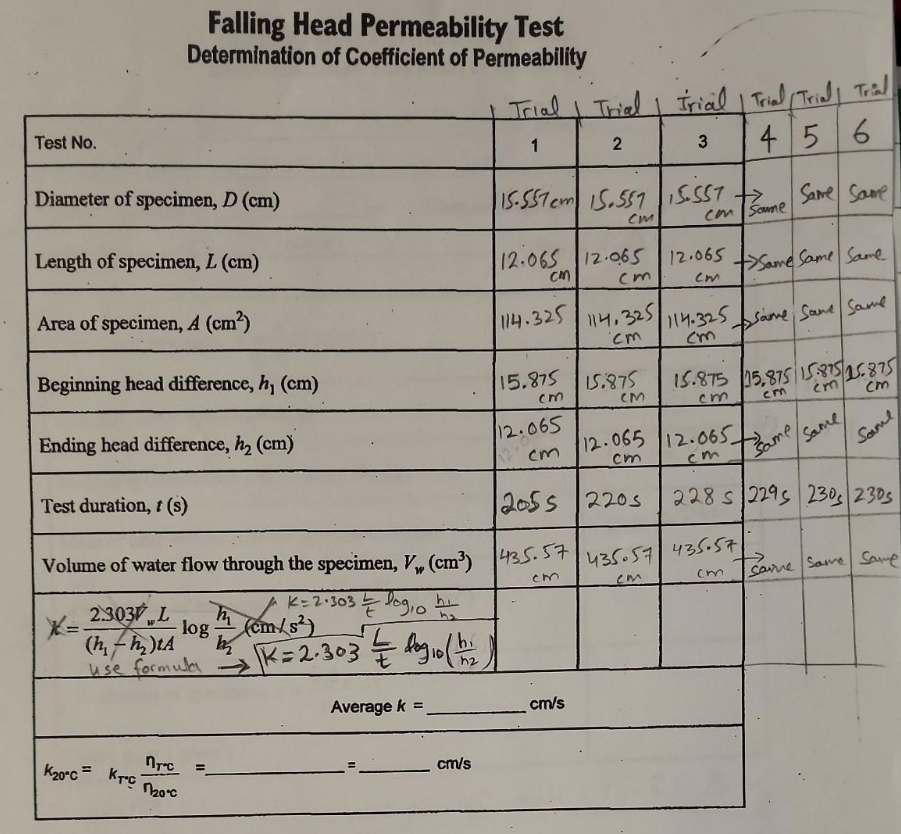 Falling Head Permeability Test
Determination of Coefficient of Permeability
Trial Trial Trial Trial Trial Trial
Test No. 1 2 3 4 5 6
Diameter of specimen, D (cm) 15.557 cm 15.557 cm 15.557 cm → Same Same Same
Length of specimen, L (cm) 12.065 cm 12.065 cm 12.065 cm → Same Same Same
Area of specimen, A (cm²) 114.325 114.325 cm 114.325 cm → same Same Same
Beginning head difference, h₁ (cm) 15.875 cm 15.875 cm 15.875 cm 15.875 cm 15.875 cm 15.875 cm
Ending head difference, h₂ (cm) 12.065 cm 12.065 cm 12.065 cm → same same Same
Test duration, t (s) 205 s 220 s 228 s 229 s 230 s 230 s
Volume of water flow through the specimen, V_w (cm³) 435.57 cm 435.57 cm 435.57 cm → same Same Same
K = 2.303 L/t log₁₀ h₁/h₂
k = 2.303V_w L / (h₁ - h₂)tA log h₁/h₂ (cm/s²)
use formula → K = 2.303 L/t log₁₀ (h₁/h₂)
Average k = ________ cm/s
k₂₀°C = k_T°C η_T°C / η₂₀°C = ________ = ________ cm/s